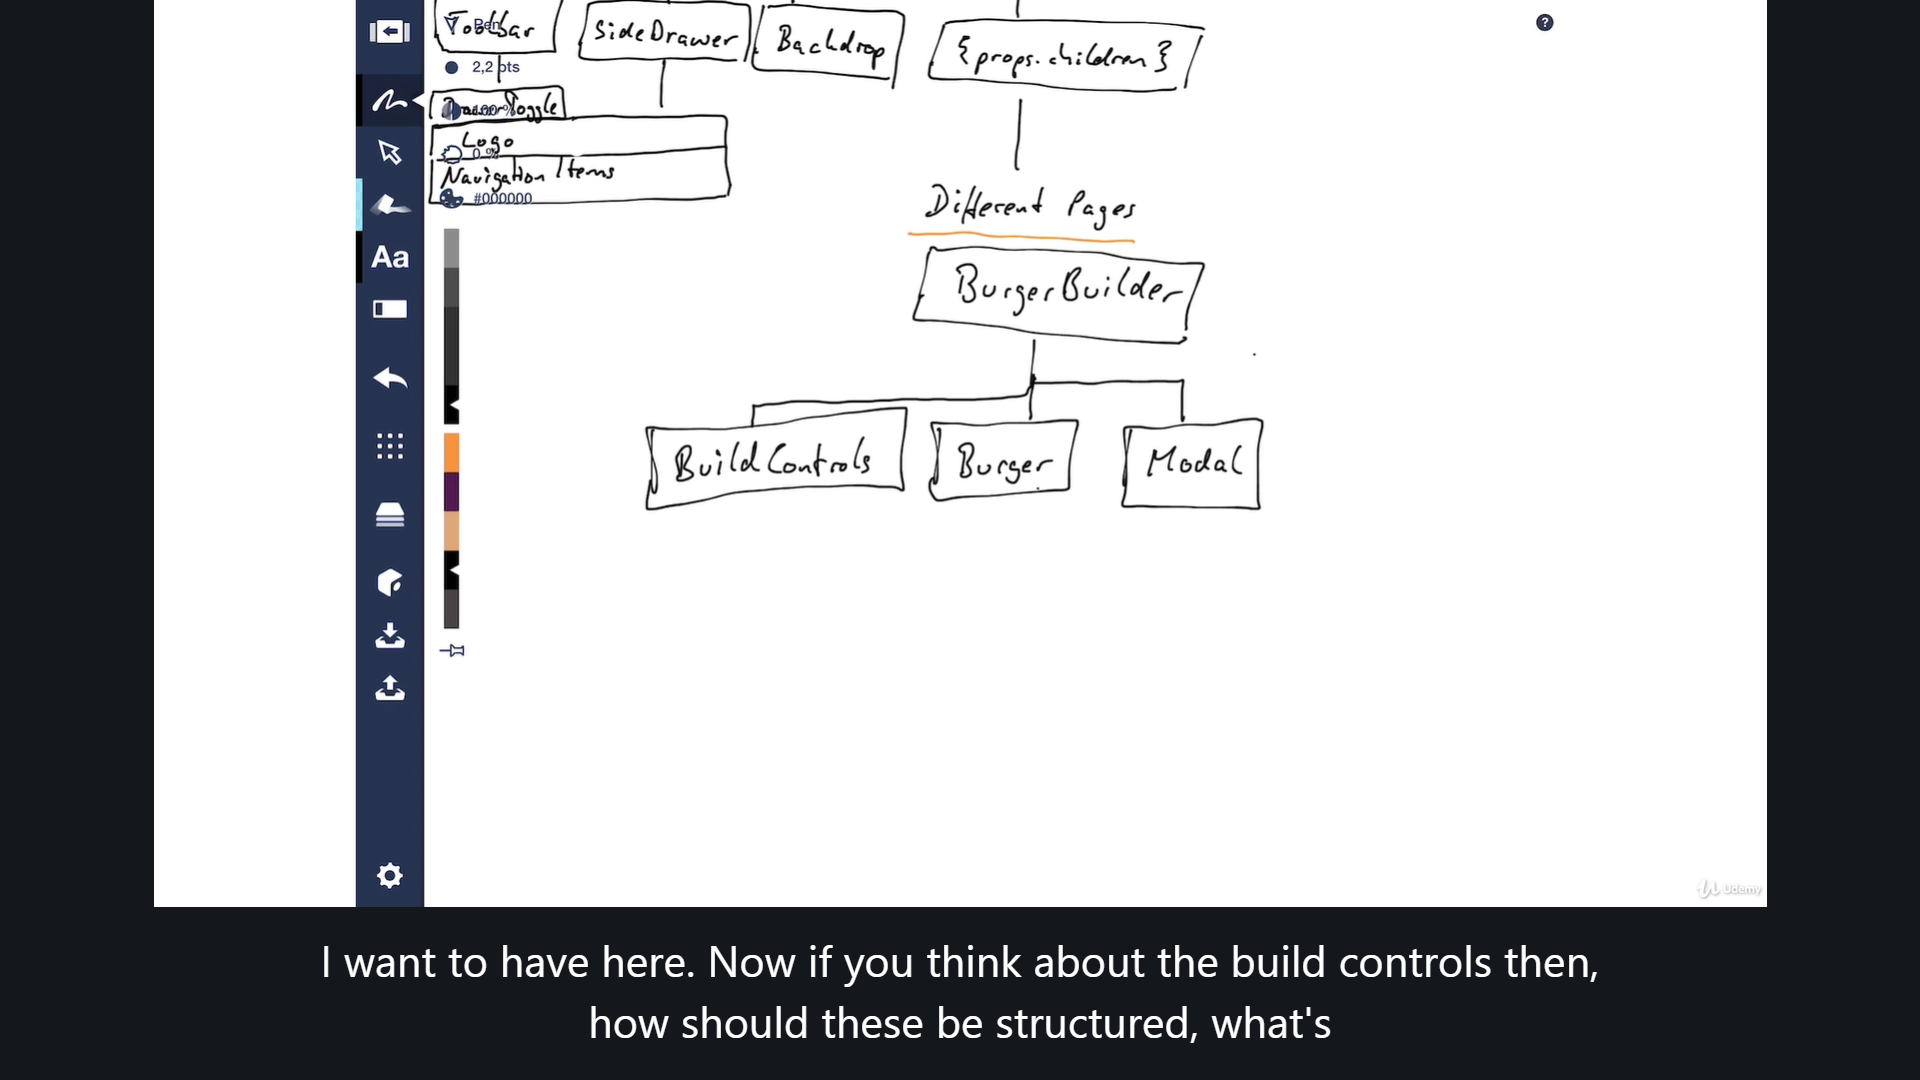 Toolbar
Pen
SideDrawer
Backdrop
{props.children}
2,2 pts
DrawerToggle
Logo
0 %
Navigation Items
#000000
Different Pages
Aa
BurgerBuilder
BuildControls
Burger
Modal
?
Udemy
I want to have here. Now if you think about the build controls then,
how should these be structured, what's